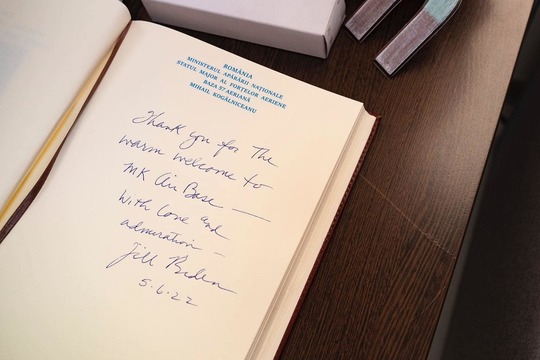 ROMÂNIA
MINISTERUL APĂRĂRII NAȚIONALE
STATUL MAJOR AL FORȚELOR AERIENE
BAZA 57 AERIANĂ
MIHAIL KOGĂLNICEANU
Thank you for The
warm welcome to
MK Air Base —
With Love and
admiration —
Jill Biden
5.6.22